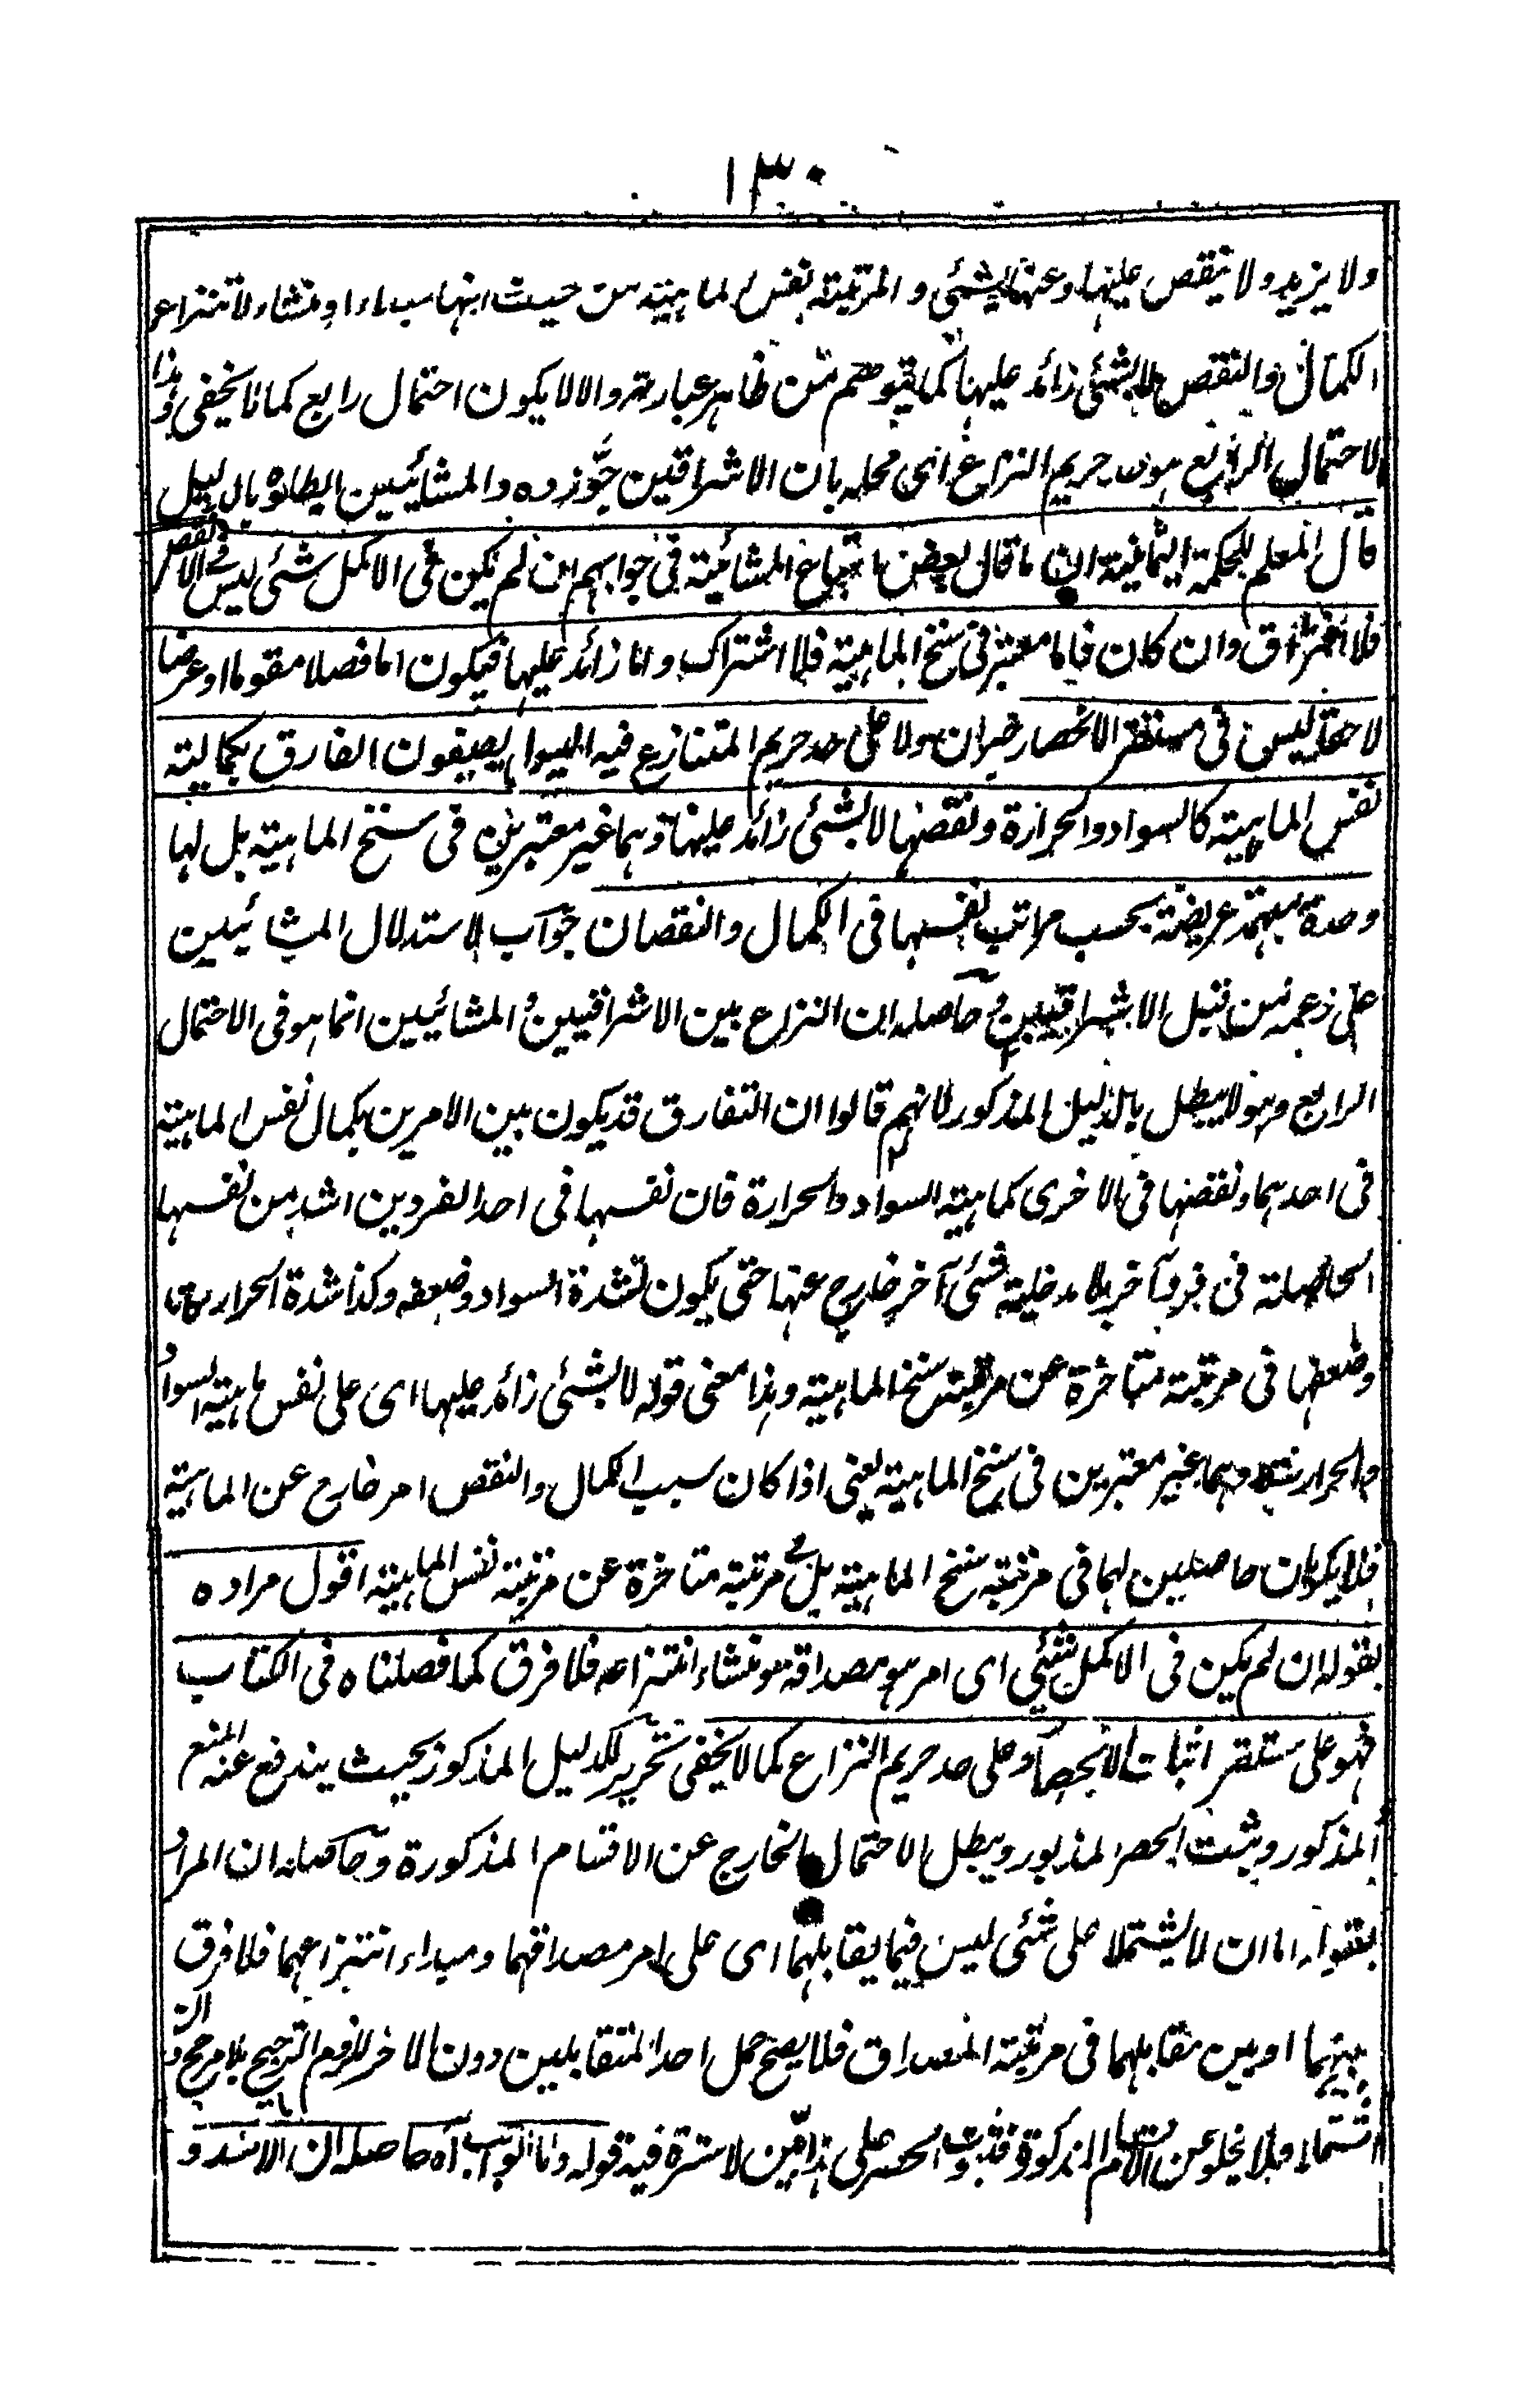 ١٣٠
ولا يزيد ولا ينقص عليها وعنها الشئى و المرتبة نفس الماهية من حيث انها مبداء او منشاء لانتزاع
الكمال والنقص لا بشئى زائد عليها كما يتوهم من ظاهر عبارته والا لا يكون احتمال رابع كما لا يخفى وهذا
الاحتمال الرابع هو حريم النزاع اى محله بان الاشراقيين جوّزوه والمشائيين ابطلوه بالدليل
قال المعلم للحكمة اليمانية ان ما قال بعض اتباع المشائية فى جوابهم ان لم يكن فى الاكمل شئى ليس فى الانقص
فلا افتراق وان كان فاما معتبر فى سنخ الماهية فلا اشتراك واما زائد عليها فيكون اما فصلا مقوما او عرضا
لاحقا ليس فى مستقر الانحصار خبران ولا على حد حريم المتنازع فيه اليسوا يصيفون الفارق بكمالية
نفس الماهية كالسواد والحرارة ونقصها لا بشئى زائد عليها وهما غير معتبرين فى سنخ الماهية بل لها
وحدة مبهمة عريضة بحسب مراتب نفسها فى الكمال والنقصان جواب لاستدلال المشائيين
على زعمه من قبل الاشراقيين حاصله ان النزاع بين الاشراقيين و المشائيين انما هو فى الاحتمال
الرابع وهو لا يبطل بالدليل المذكور لانهم قالوا ان التفارق قد يكون بين الامرين بكمال نفس الماهية
فى احدهما ونقصها فى الاخرى كماهية السواد والحرارة فان نفسها فى احد الفردين اشد من نفسها
الحاصلة فى فرد آخر بلا مدخلية شئى آخر خارج عنها حتى يكون لشدة السواد وضعفه وكذا شدة الحرارة
وضعفها فى مرتبة متاخرة عن مرتبة سنخ الماهية وهذا معنى قوله لا بشئى زائد عليها اى على نفس ماهية السواد
والحرارة وهما غير معتبرين فى سنخ الماهية يعنى اذا كان سبب الكمال والنقص امر خارج عن الماهية
فلا يكونان حاصلين لها فى مرتبة سنخ الماهية بل فى مرتبة متاخرة عن مرتبة نفس الماهية اقول مراده
بقوله ان لم يكن فى الاكمل شئى اى امر هو مصداقه ومنشاء انتزاعه فلا فرق كما فصلناه فى الكتاب
فهو على مستقر اثبات الانحصار وعلى حد حريم النزاع كما لا يخفى تحرير للدليل المذكور بحيث يندفع عنه المنع
المذكور ويثبت الحصر المذبور ويبطل الاحتمال الخارج عن الاقسام المذكورة وحاصله ان المراد
بقوله اما ان لا يشتملا على شئى ليس فيما يقابلهما اى على امر مصداقهما ومبداء انتزاعهما فلا فرق
بينهما او بين مقابلهما فى مرتبة المصداق فلا يصح حمل احد المتقابلين دون الاخر للزوم الترجيح بلا مرجح وان
اشتملا فلا يخلو عن الاقسام المذكورة فثبوت الحصر على هذا مبين لا سترة فيه قوله واما الجواب آه حاصله ان الاشد و